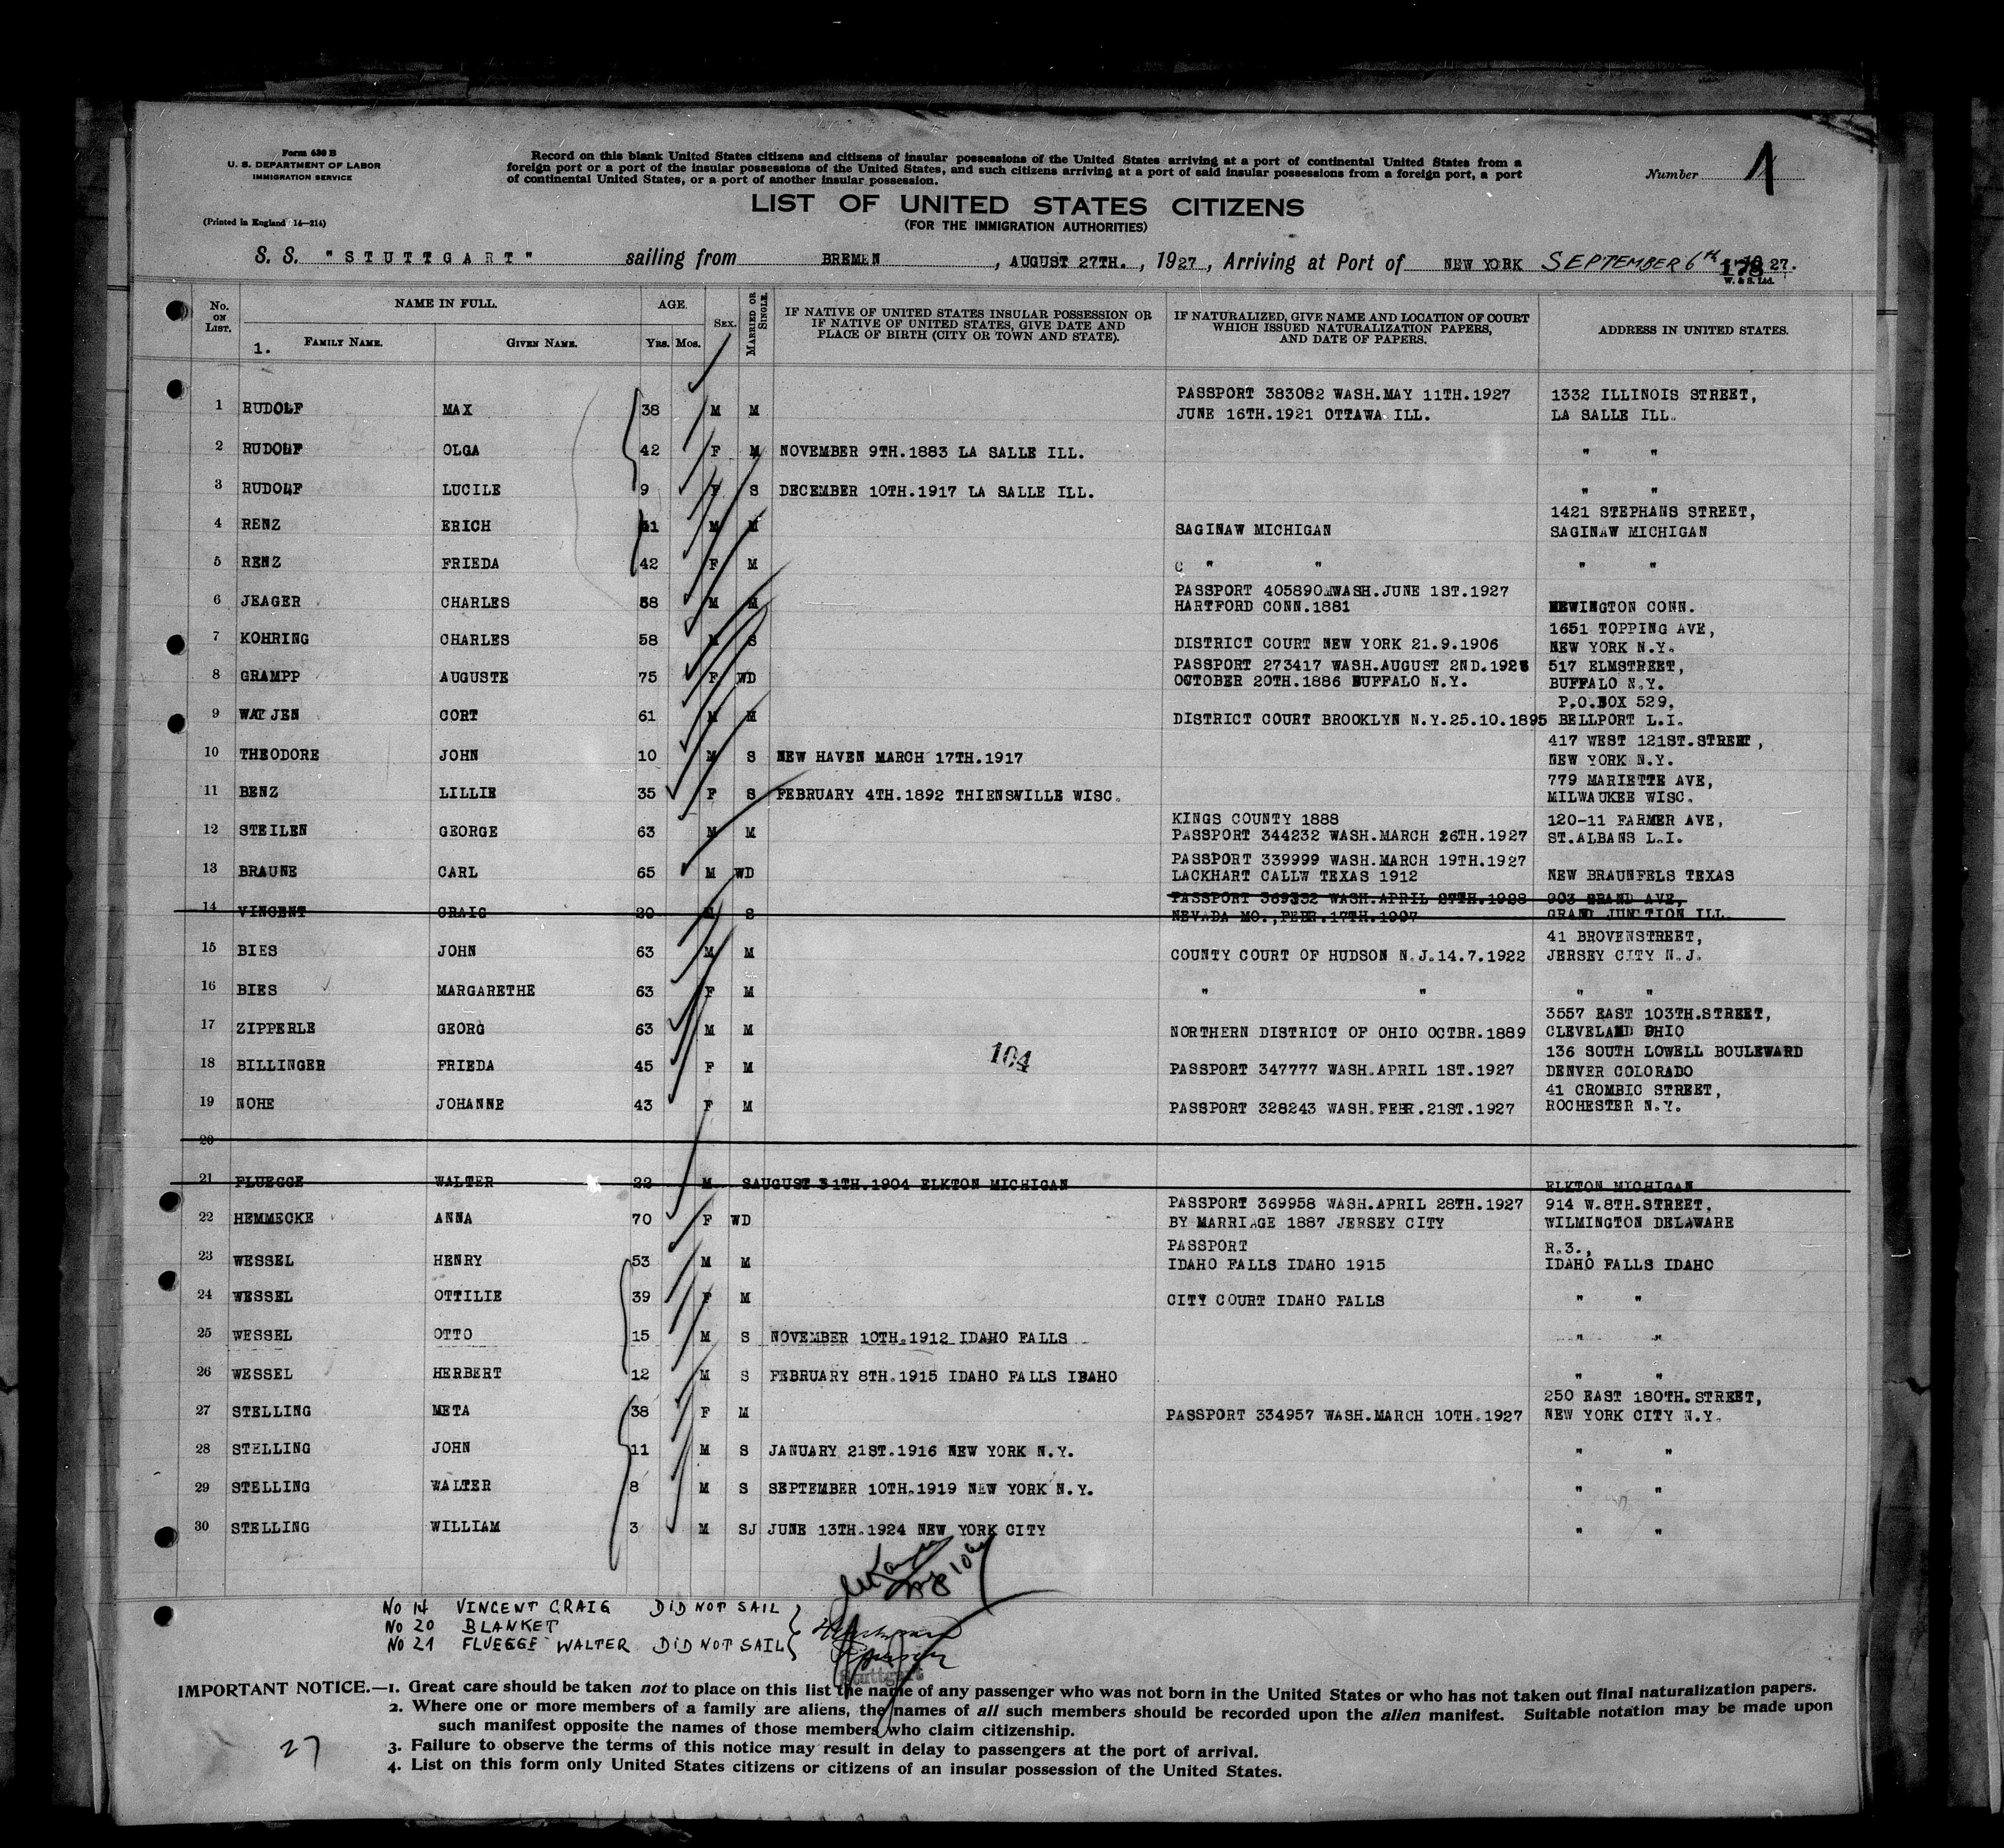 Form 630 B
U. S. DEPARTMENT OF LABOR
IMMIGRATION SERVICE
(Printed in England 14—214)
Record on this blank United States citizens and citizens of insular possessions of the United States arriving at a port of continental United States from a
foreign port or a port of the insular possessions of the United States, and such citizens arriving at a port of said insular possessions from a foreign port, a port
of continental United States, or a port of another insular possession.
Number 1
LIST OF UNITED STATES CITIZENS
(FOR THE IMMIGRATION AUTHORITIES)
S. S. "STUTTGART" sailing from BREMEN, AUGUST 27TH., 1927, Arriving at Port of NEW YORK SEPTEMBER 6th 27.
W. & S. Ltd.
No. ON LIST. NAME IN FULL. AGE. SEX. MARRIED OR SINGLE. IF NATIVE OF UNITED STATES INSULAR POSSESSION OR IF NATIVE OF UNITED STATES, GIVE DATE AND PLACE OF BIRTH (CITY OR TOWN AND STATE). IF NATURALIZED, GIVE NAME AND LOCATION OF COURT WHICH ISSUED NATURALIZATION PAPERS, AND DATE OF PAPERS. ADDRESS IN UNITED STATES.
1. FAMILY NAME. GIVEN NAME. YRS. MOS.
PASSPORT 383082 WASH.MAY 11TH.1927 1332 ILLINOIS STREET,
1 RUDOLF MAX 38 M M JUNE 16TH.1921 OTTAWA ILL. LA SALLE ILL.
2 RUDOLF OLGA 42 F M NOVEMBER 9TH.1883 LA SALLE ILL. " "
3 RUDOLF LUCILE 9 F S DECEMBER 10TH.1917 LA SALLE ILL. " "
1421 STEPHANS STREET,
4 RENZ ERICH 41 M M SAGINAW MICHIGAN SAGINAW MICHIGAN
5 RENZ FRIEDA 42 F M C " " " "
PASSPORT 405890 WASH.JUNE 1ST.1927
6 JEAGER CHARLES 58 M M HARTFORD CONN.1881 NEWINGTON CONN.
1651 TOPPING AVE,
7 KOHRING CHARLES 58 M S DISTRICT COURT NEW YORK 21.9.1906 NEW YORK N.Y.
PASSPORT 273417 WASH.AUGUST 2ND. 517 ELMSTREET,
8 GRAMPP AUGUSTE 75 F WD OCTOBER 20TH.1886 BUFFALO N.Y. BUFFALO N.Y.
P.O.BOX 529,
9 WATJEN CORT 61 M M DISTRICT COURT BROOKLYN N.Y.25.10.1895 BELLPORT L.I.
417 WEST 121ST.STREET,
10 THEODORE JOHN 10 M S NEW HAVEN MARCH 17TH.1917 NEW YORK N.Y.
779 MARIETTE AVE,
11 BENZ LILLIE 35 F S FEBRUARY 4TH.1892 THIENSVILLE WISC. MILWAUKEE WISC.
KINGS COUNTY 1888 120-11 FARMER AVE,
12 STEILEN GEORGE 63 M M PASSPORT 344232 WASH.MARCH 26TH.1927 ST.ALBANS L.I.
PASSPORT 339999 WASH.MARCH 19TH.1927
13 BRAUNE CARL 65 M WD LACKHART CALLW TEXAS 1912 NEW BRAUNFELS TEXAS
PASSPORT 369332 WASH.APRIL 27TH.1928 903 GRAND AVE,
14 VINCENT CRAIG 20 M S NEVADA MO.,FEBR.17TH.1907 GRAND JUNCTION ILL.
41 BROVENSTREET,
15 BIES JOHN 63 M M COUNTY COURT OF HUDSON N.J.14.7.1922 JERSEY CITY N.J.
16 BIES MARGARETHE 63 F M " " " "
3557 EAST 103TH.STREET,
17 ZIPPERLE GEORG 63 M M NORTHERN DISTRICT OF OHIO OCTBR.1889 CLEVELAND OHIO
104
136 SOUTH LOWELL BOULEWARD
18 BILLINGER FRIEDA 45 F M PASSPORT 347777 WASH.APRIL 1ST.1927 DENVER COLORADO
41 CROMBIC STREET,
19 NOHE JOHANNE 43 F M PASSPORT 328243 WASH.FEBR.21ST.1927 ROCHESTER N.Y.
20
21 FLUEGGE WALTER 22 M S AUGUST 31TH.1904 ELKTON MICHIGAN ELKTON MICHIGAN
PASSPORT 369958 WASH.APRIL 28TH.1927 914 W.8TH.STREET,
22 HEMMECKE ANNA 70 F WD BY MARRIAGE 1887 JERSEY CITY WILMINGTON DELAWARE
PASSPORT R.3.,
23 WESSEL HENRY 53 M M IDAHO FALLS IDAHO 1915 IDAHO FALLS IDAHO
24 WESSEL OTTILIE 39 F M CITY COURT IDAHO FALLS " "
25 WESSEL OTTO 15 M S NOVEMBER 10TH.1912 IDAHO FALLS " "
26 WESSEL HERBERT 12 M S FEBRUARY 8TH.1915 IDAHO FALLS IDAHO " "
250 EAST 180TH.STREET,
27 STELLING META 38 F M PASSPORT 334957 WASH.MARCH 10TH.1927 NEW YORK CITY N.Y.
28 STELLING JOHN 11 M S JANUARY 21ST.1916 NEW YORK N.Y. " "
29 STELLING WALTER 8 M S SEPTEMBER 10TH.1919 NEW YORK N.Y. " "
30 STELLING WILLIAM 3 M SJ JUNE 13TH.1924 NEW YORK CITY " "
No 14 VINCENT CRAIG DID NOT SAIL
No 20 BLANKET
No 21 FLUEGGE WALTER DID NOT SAIL
Stuttgart
IMPORTANT NOTICE.—1. Great care should be taken not to place on this list the name of any passenger who was not born in the United States or who has not taken out final naturalization papers.
2. Where one or more members of a family are aliens, the names of all such members should be recorded upon the alien manifest. Suitable notation may be made upon
such manifest opposite the names of those members who claim citizenship.
3. Failure to observe the terms of this notice may result in delay to passengers at the port of arrival.
4. List on this form only United States citizens or citizens of an insular possession of the United States.
27